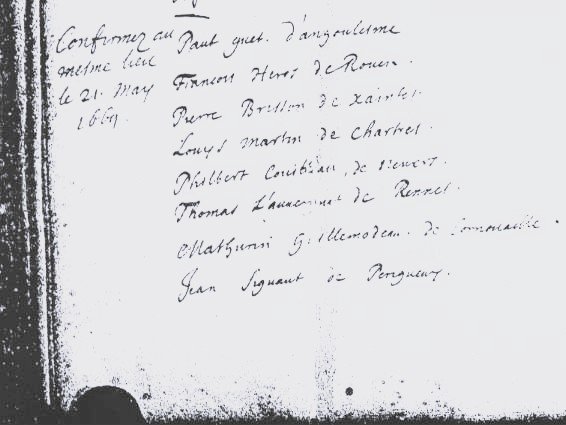 Confirmez au
mesme lieu
le 21. May
1669.
Paul guet. d'angoulesme
Francois Heros de Rouen.
Pierre Brisson de xaintes.
Louys Martin de Chartres.
Philbert de Nevers.
Thomas de Rennes.
Mathurin de Cornouaille.
Jean Siguaut de Perigueux.